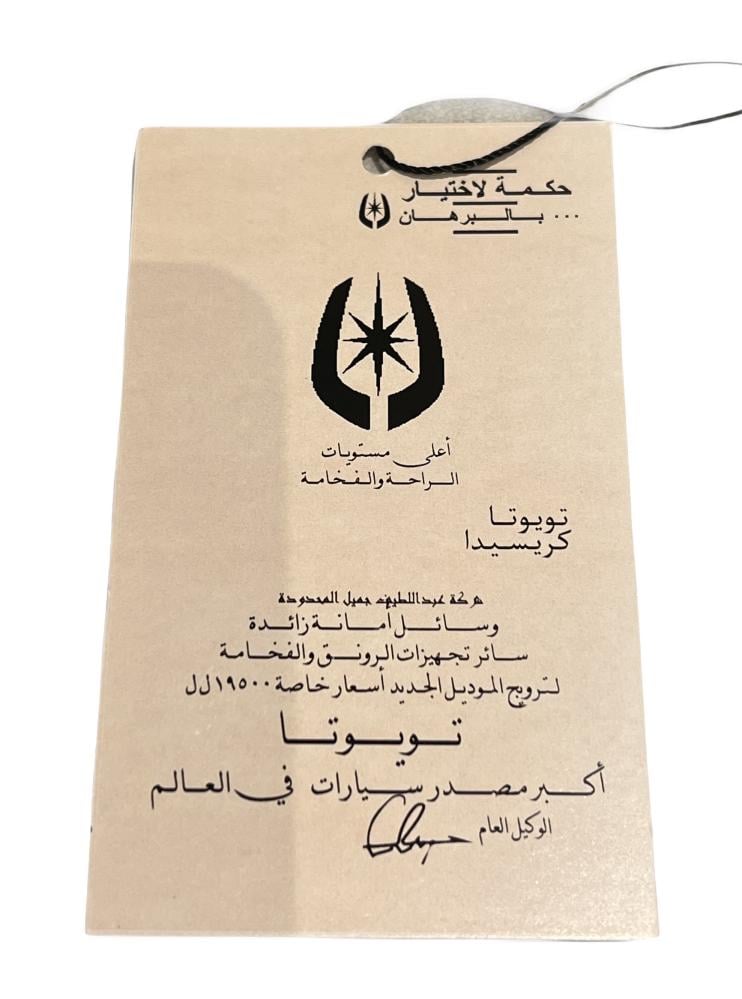 حكمة لاختيار
بالبرهان ...
أعلى مستويات
الراحة والفخامة
تويوتا
كريسيدا
شركة عبداللطيف جميل المحدودة
وسائل أمانة زائدة
سائر تجهيزات الرونق والفخامة
لترويج الموديل الجديد أسعار خاصة ١٩٥٠٠ ل ل
تويوتا
أكبر مصدر سيارات في العالم
الوكيل العام